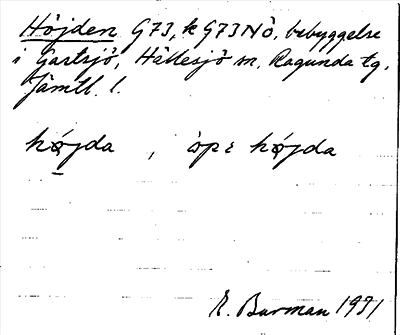 Höjden G73, k G73NÖ, bebyggelse
i Gastsjö, Hällesjö sn, Ragunda tg,
Jämtl. l.
højda , òpɛ højda
E. Burman 1931